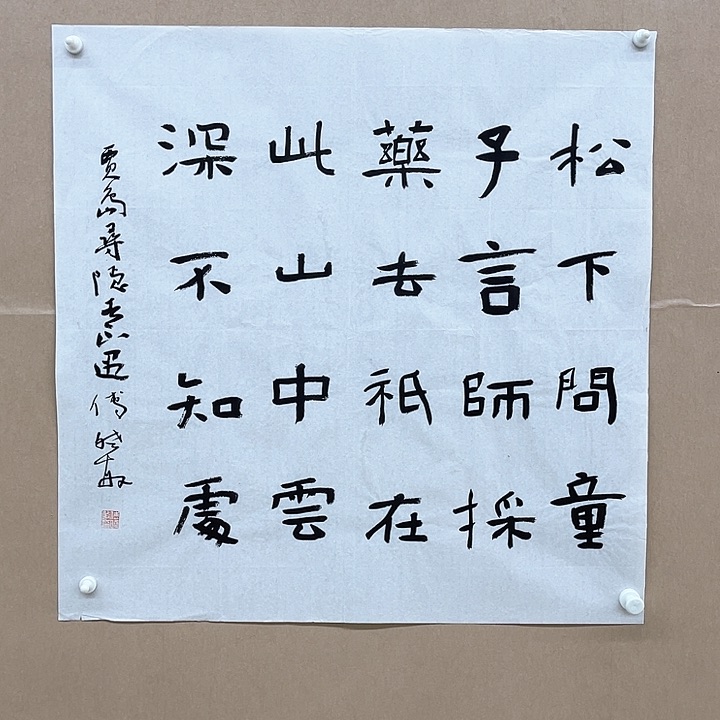 松下問童
子言師採
藥去祇在
此山中雲
深不知處
賈島尋隱者不遇 傅